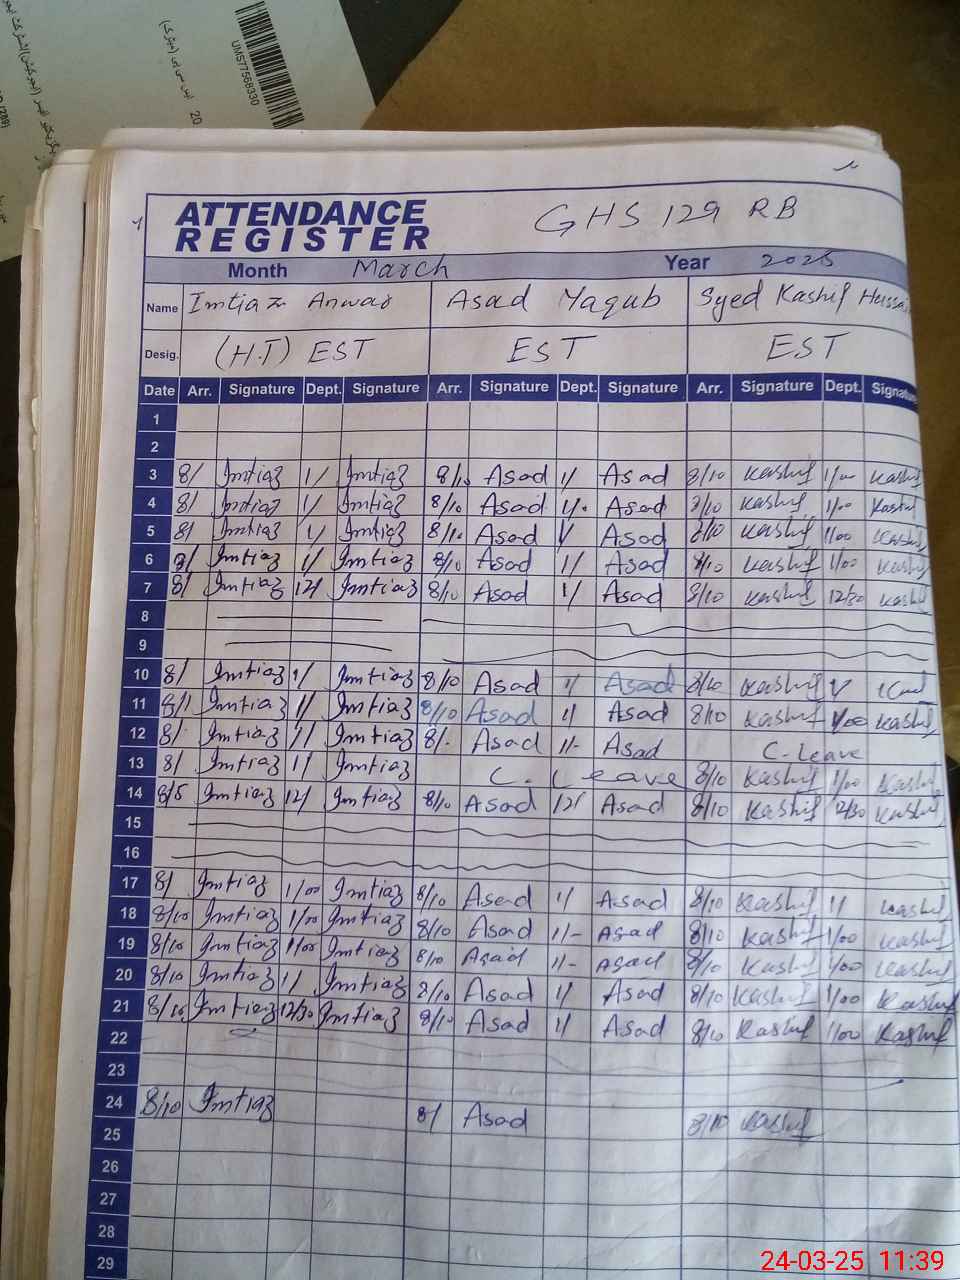 UMS77568330
20
ATTENDANCE
REGISTER
GHS 129 RB
Month March Year 2025
Name Imtiaz Anwar Asad Yaqub Syed Kashif Hussai
Desig. (H.T) EST EST EST
Date Arr. Signature Dept. Signature Arr. Signature Dept. Signature Arr. Signature Dept. Signatu
1
2
3 8/ Imtiaz 1/ Imtiaz 8/10 Asad 1/ Asad 8/10 Kashif 1/00 Kashif
4 8/ Imtiaz 1/ Imtiaz 8/10 Asad 1/. Asad 8/10 Kashif 1/00 Kashif
5 8/ Imtiaz 1/ Imtiaz 8/10 Asad 1/ Asad 8/10 Kashif 1/00 Kashif
6 8/ Imtiaz 1/ Imtiaz 8/10 Asad 1/ Asad 8/10 Kashif 1/00 Kashif
7 8/ Imtiaz 12/ Imtiaz 8/10 Asad 1/ Asad 8/10 Kashif 12/30 Kashif
8
9
10 8/ Imtiaz 1/ Imtiaz 8/10 Asad 1/ Asad 8/10 Kashif 1/
11 8/1 Imtiaz 1/ Imtiaz 8/10 Asad 1/ Asad 8/10 Kashif 1/00 Kashif
12 8/. Imtiaz 1/ Imtiaz 8/- Asad 1/- Asad C-Leave
13 8/ Imtiaz 1/ Imtiaz C. Leave 8/10 Kashif 1/00 Kashif
14 8/5 Imtiaz 12/ Imtiaz 8/10 Asad 12/ Asad 8/10 Kashif 12/30 Kashif
15
16
17 8/ Imtiaz 1/00 Imtiaz 8/10 Asad 1/ Asad 8/10 Kashif 1/ Kashif
18 8/10 Imtiaz 1/00 Imtiaz 8/10 Asad 1/- Asad 8/10 Kashif 1/00 Kashif
19 8/10 Imtiaz 1/00 Imtiaz 8/10 Asad 1/- Asad 8/10 Kashif 1/00 Kashif
20 8/10 Imtiaz 1/ Imtiaz 8/10 Asad 1/ Asad 8/10 Kashif 1/00 Kashif
21 8/10 Imtiaz 12/30 Imtiaz 8/10 Asad 1/ Asad 8/10 Kashif 1/00 Kashif
22
23
24 8/10 Imtiaz 8/ Asad 8/10 Kashif
25
26
27
28
29
24-03-25 11:39